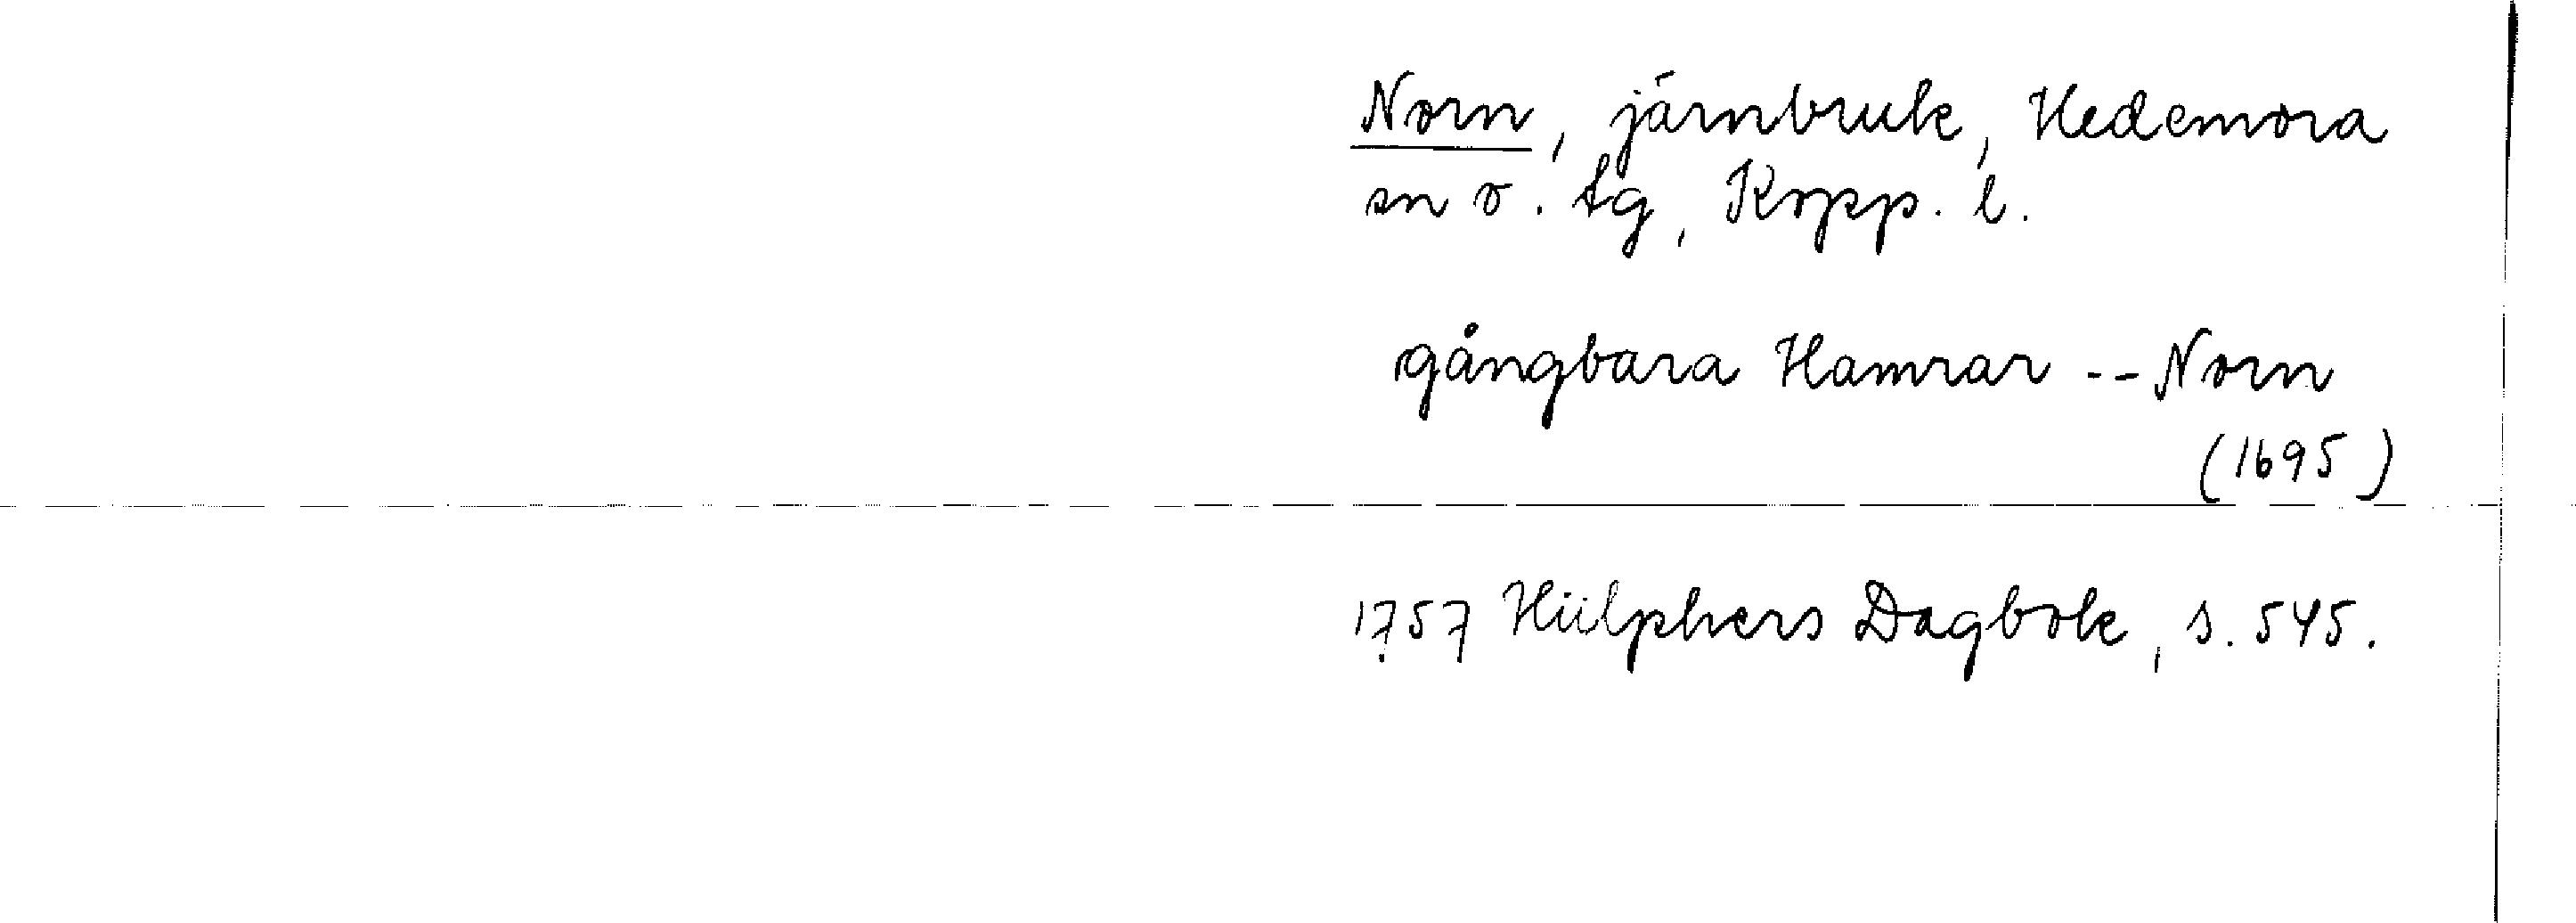 Norn, järnbruk, Hedemora
sn o. tg, Kopp. l.
gångbara Hamrar -- Norn
(1695)
1757 Hülphers Dagbok, s. 545.